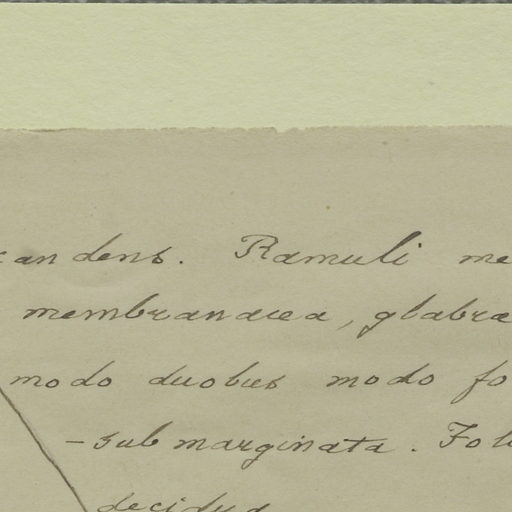 candens. Ramuli me
membranacea, glabra
modo duobus modo fo
-submarginata. Fol
decidua